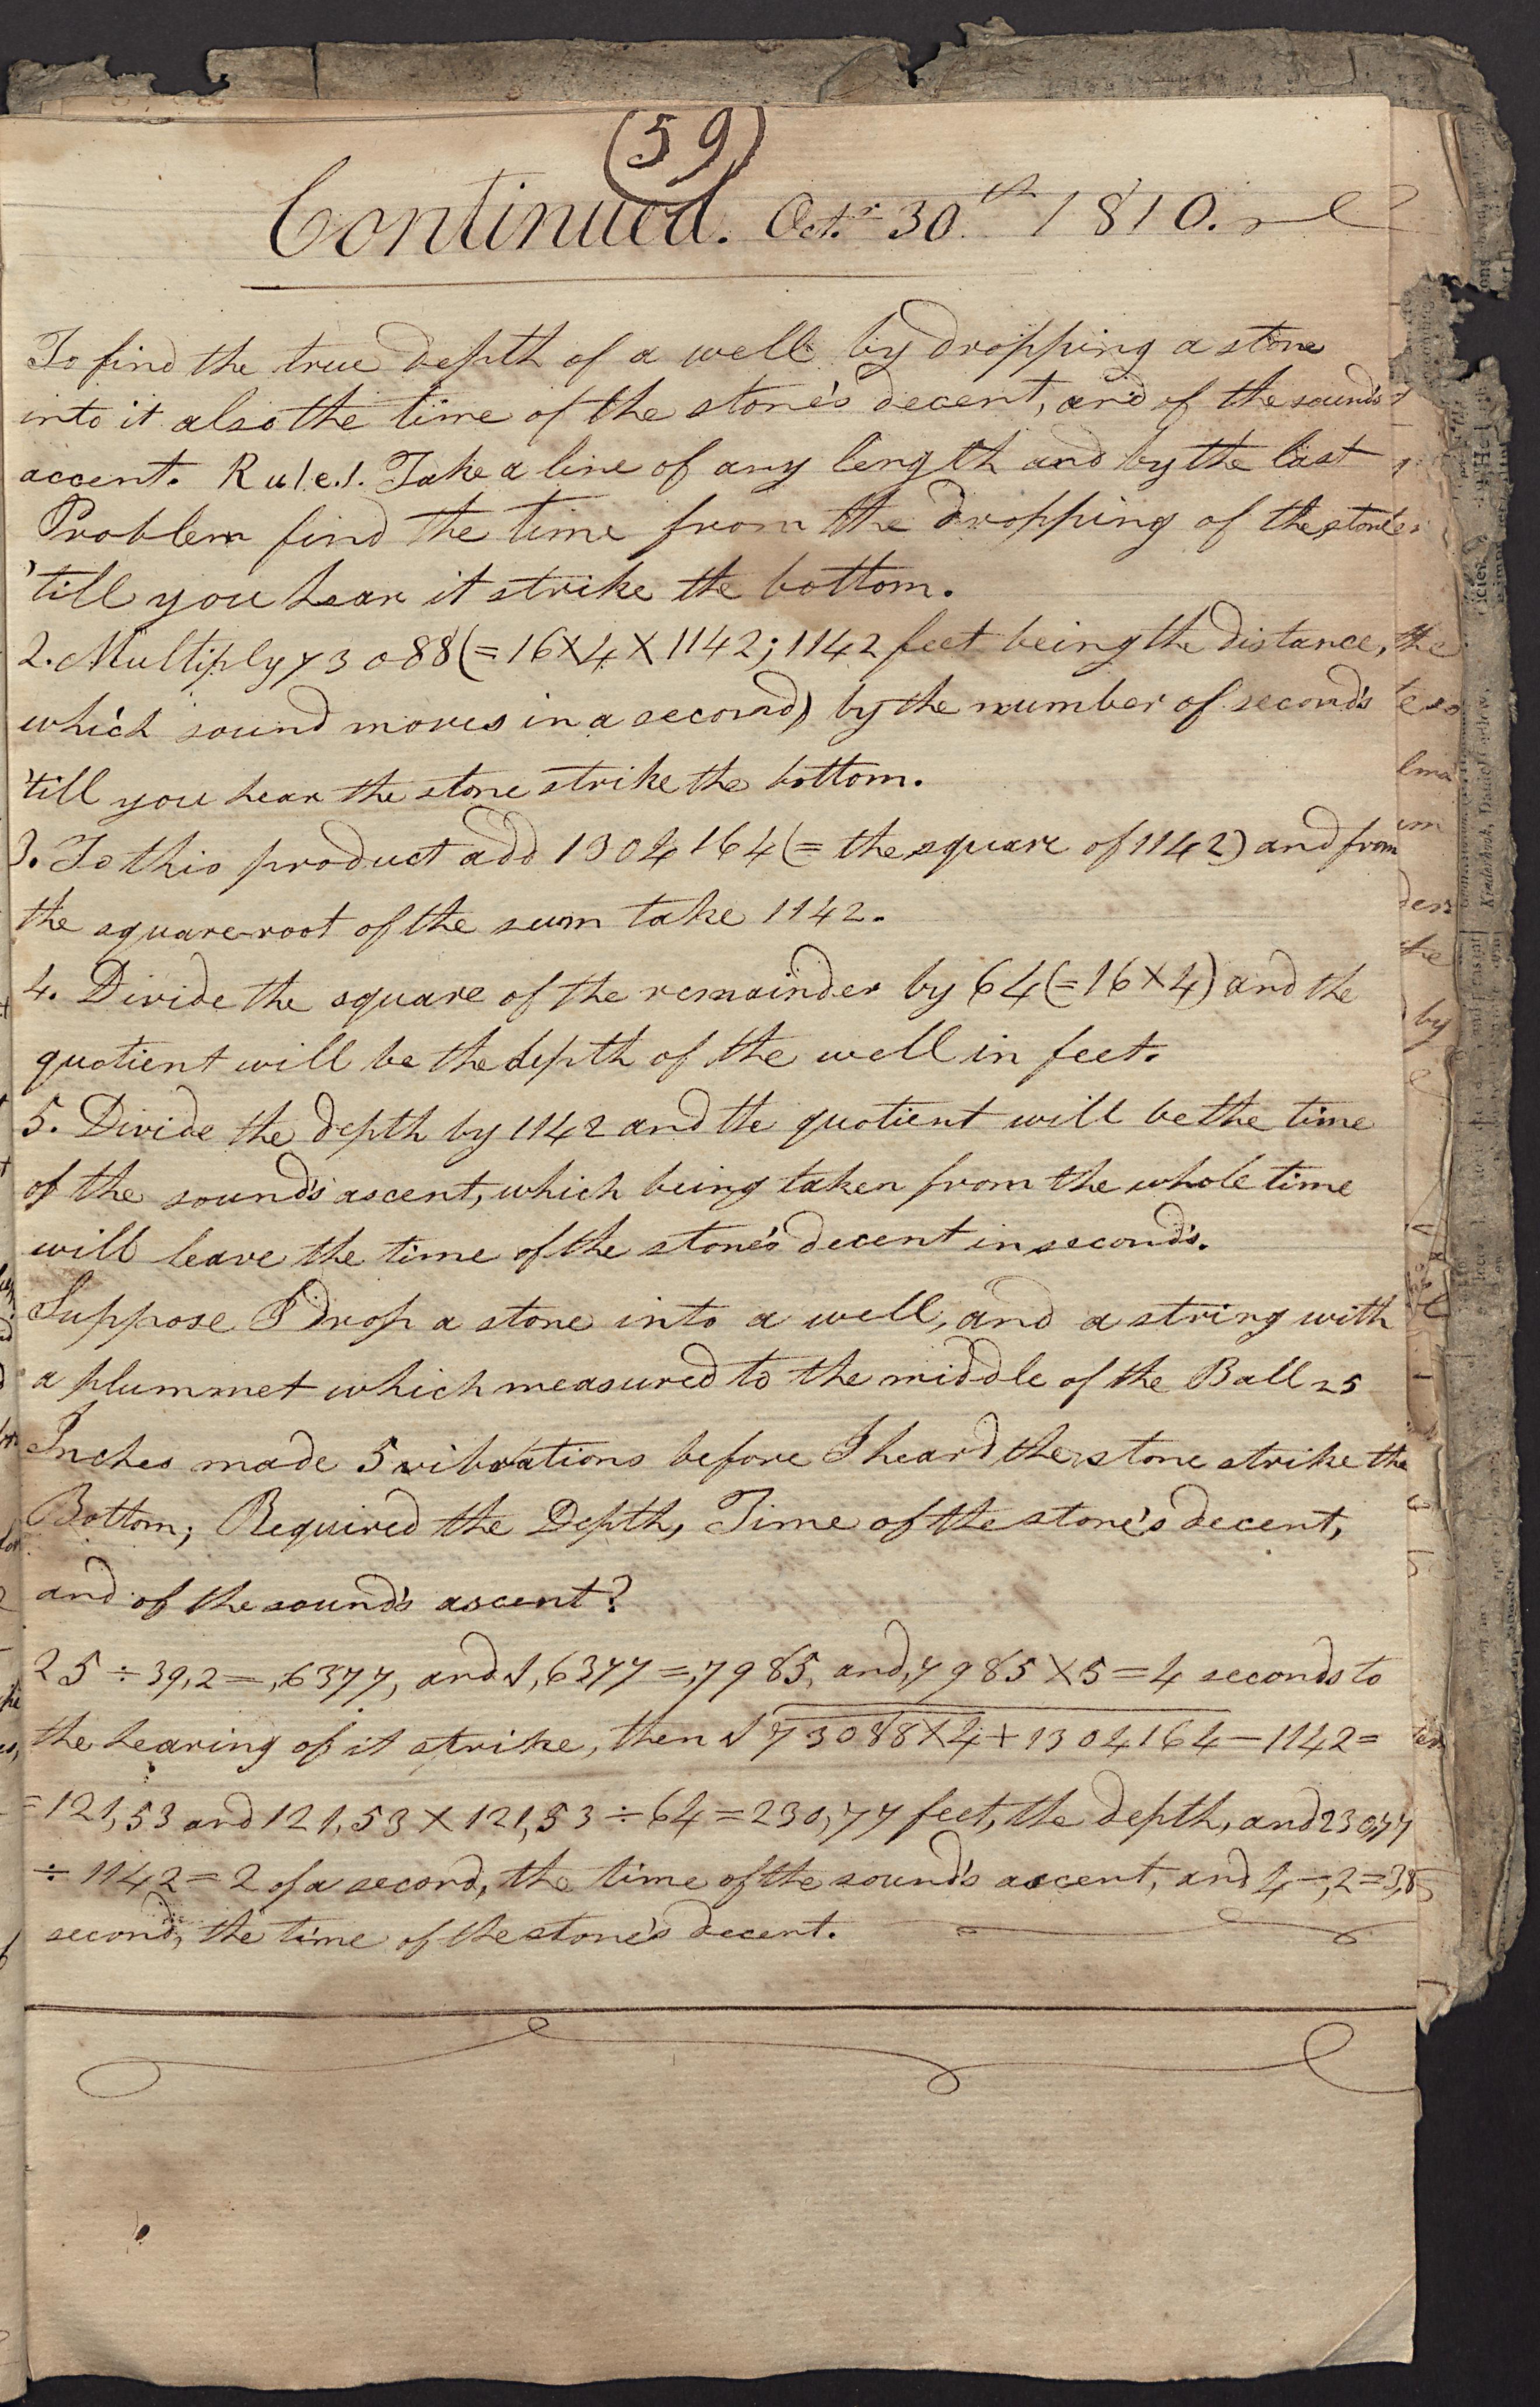 (59)
Continued. Oct.r 30.th 1810.
To find the true depth of a well by dropping a stone
into it also the time of the stone's decent, and of the sound's
accent. Rule.1. Take a line of any length and by the last
Problem find the time from the dropping of the stone
'till you hear it strike the bottom.
2. Multiply 73088 (=16×4×1142; 1142 feet being the distance,
which sound moves in a second) by the number of second's
'till you hear the stone strike the bottom.
3. To this product add 1304164 (= the square of 1142) and from
the square root of the sum take 1142.
4. Divide the square of the remainder by 64 (=16×4) and the
quotient will be the depth of the well in feet.
5. Divide the depth by 1142 and the quotient will be the time
of the sound's ascent, which being taken from the whole time
will leave the time of the stone's decent in second's.
Suppose I drop a stone into a well, and a string with
a plummet which measured to the middle of the Ball 25
Inches made 5 vibrations before I heard the stone strike the
Bottom; Required the Depth, Time of the stone's decent,
and of the sound's ascent?
25÷39,2=,6377, and √,6377=,7985, and,7985×5=4 seconds to
the hearing of it strike, then √73088×4+1304164—1142=
=121,53 and 121,53×121,53÷64=230,77 feet, the depth, and 230,77
÷1142=2 of a second, the time of the sound's ascent, and 4—,2=3,8
second, the time of the stone's decent.